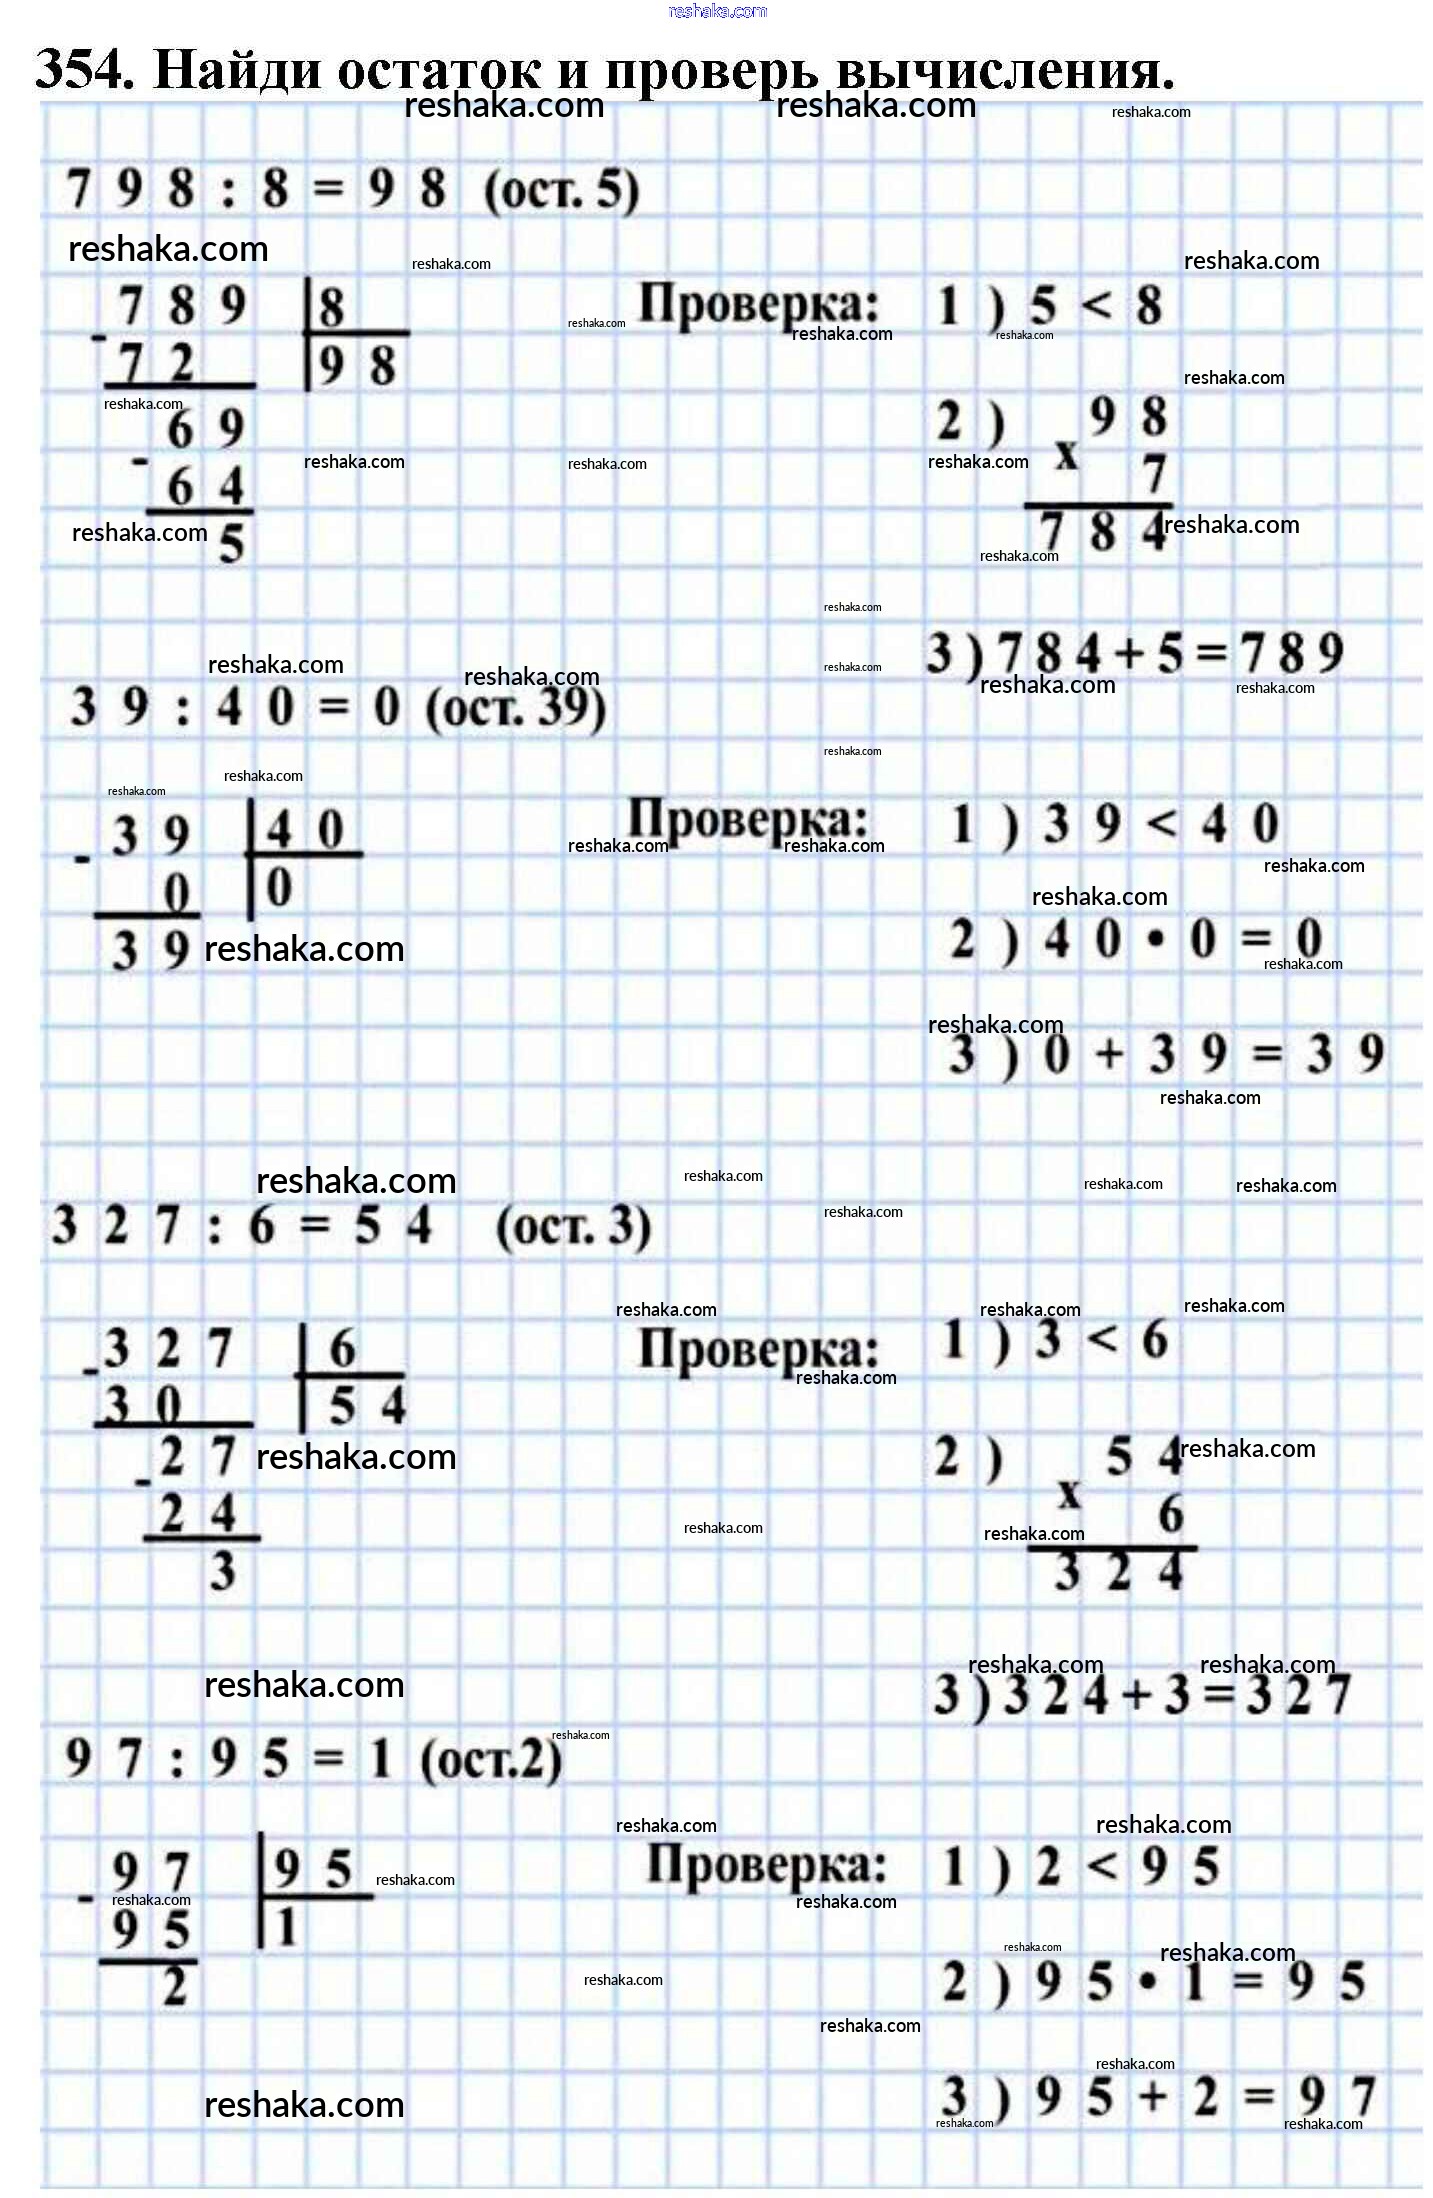 reshaka.com
354. Найди остаток и проверь вычисления.
reshaka.com reshaka.com reshaka.com
798 : 8 = 98 (ост. 5)
reshaka.com reshaka.com reshaka.com
789 8 Проверка: 1) 5 < 8
reshaka.com reshaka.com reshaka.com
- 72 98
reshaka.com reshaka.com
69 2) 98
- reshaka.com reshaka.com reshaka.com x
64 7
reshaka.com 5 784 reshaka.com
reshaka.com
reshaka.com
3) 784 + 5 = 789
reshaka.com reshaka.com reshaka.com reshaka.com reshaka.com
39 : 40 = 0 (ост. 39)
reshaka.com
reshaka.com reshaka.com
39 40 Проверка: 1) 39 < 40
- reshaka.com reshaka.com reshaka.com
0 0 reshaka.com
39 reshaka.com 2) 40 • 0 = 0
reshaka.com
reshaka.com
3) 0 + 39 = 39
reshaka.com
reshaka.com reshaka.com reshaka.com reshaka.com
327 : 6 = 54 (ост. 3) reshaka.com
reshaka.com reshaka.com reshaka.com
327 6 Проверка: 1) 3 < 6
- reshaka.com
30 54
27 reshaka.com 2) 54 reshaka.com
- x
24 6
reshaka.com reshaka.com
3 324
reshaka.com reshaka.com reshaka.com
3) 324 + 3 = 327
reshaka.com
97 : 95 = 1 (ост.2)
reshaka.com reshaka.com
97 95 reshaka.com Проверка: 1) 2 < 95
- reshaka.com reshaka.com
95 1
reshaka.com reshaka.com
2 reshaka.com 2) 95 • 1 = 95
reshaka.com
reshaka.com
reshaka.com 3) 95 + 2 = 97
reshaka.com reshaka.com